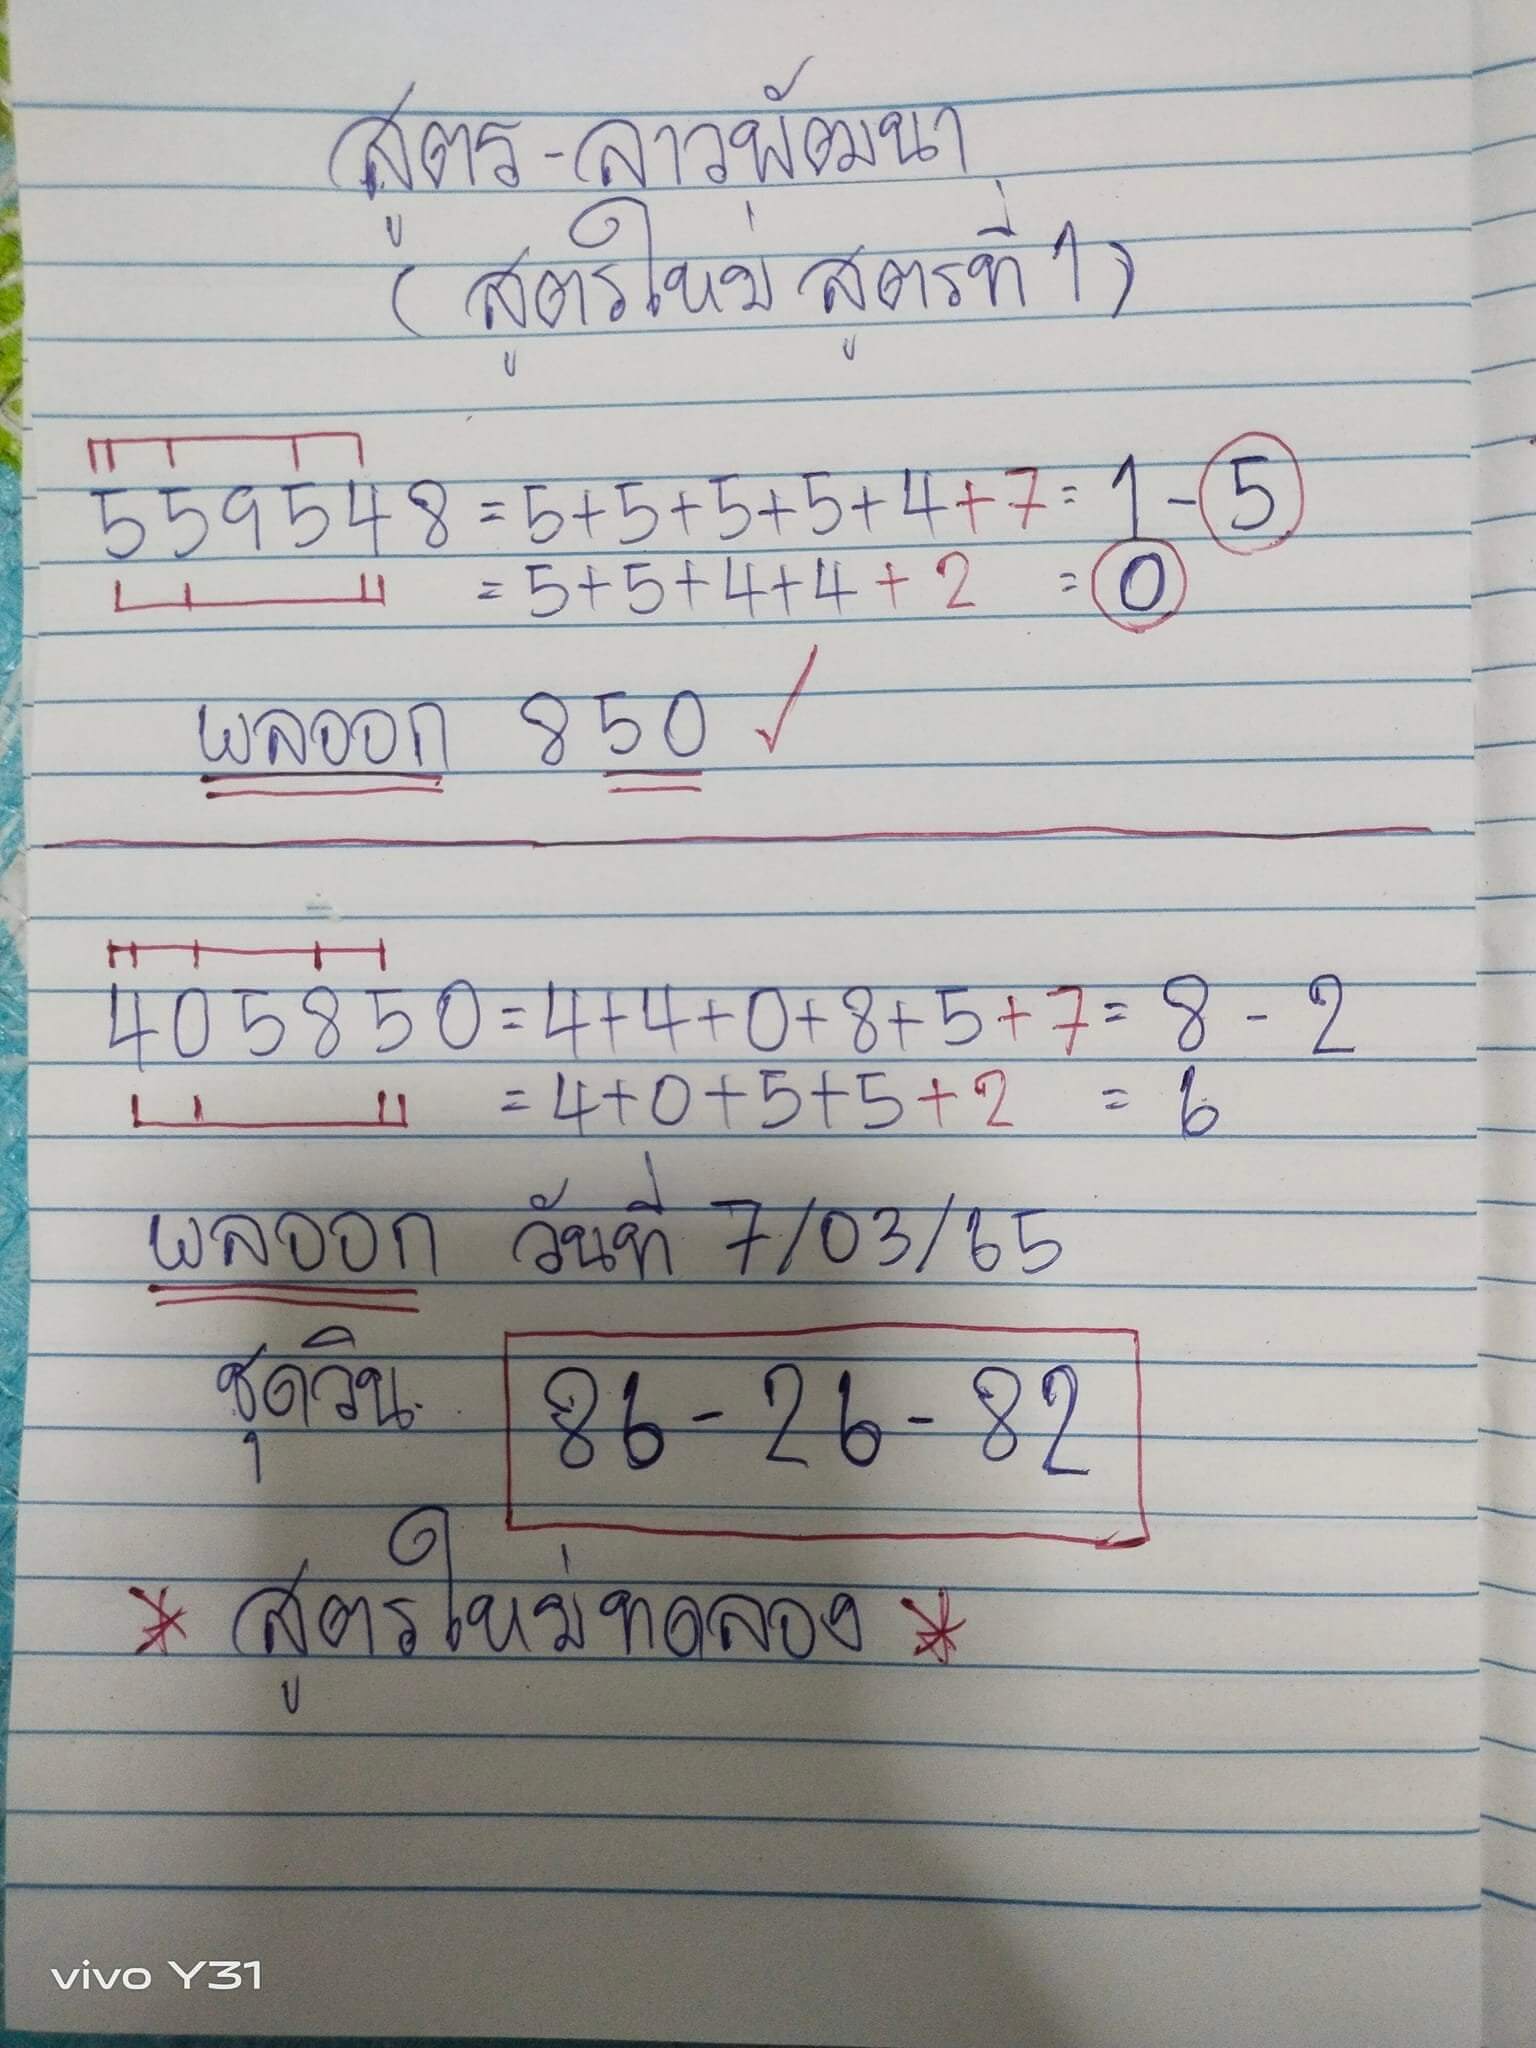 สูตร-ลาวพัฒนา
(สูตรใหม่ สูตรที่ 1)
559548 = 5+5+5+5+4+7 = 1-5
= 5+5+4+4+2 = 0
ผลออก 850 ✓
405850 = 4+4+0+8+5+7 = 8-2
= 4+0+5+5+2 = 6
ผลออก วันที่ 7/03/65
ชุดวิน 86-26-82
* สูตรใหม่ทดลอง *
vivo Y31